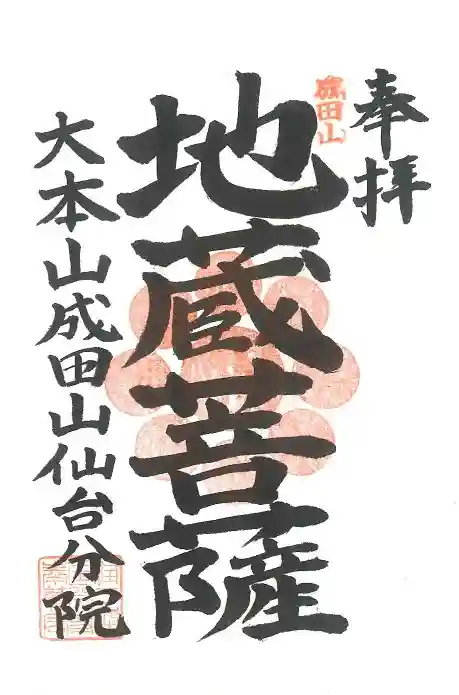 奉拝
成田山
地蔵菩薩
大本山成田山仙台分院